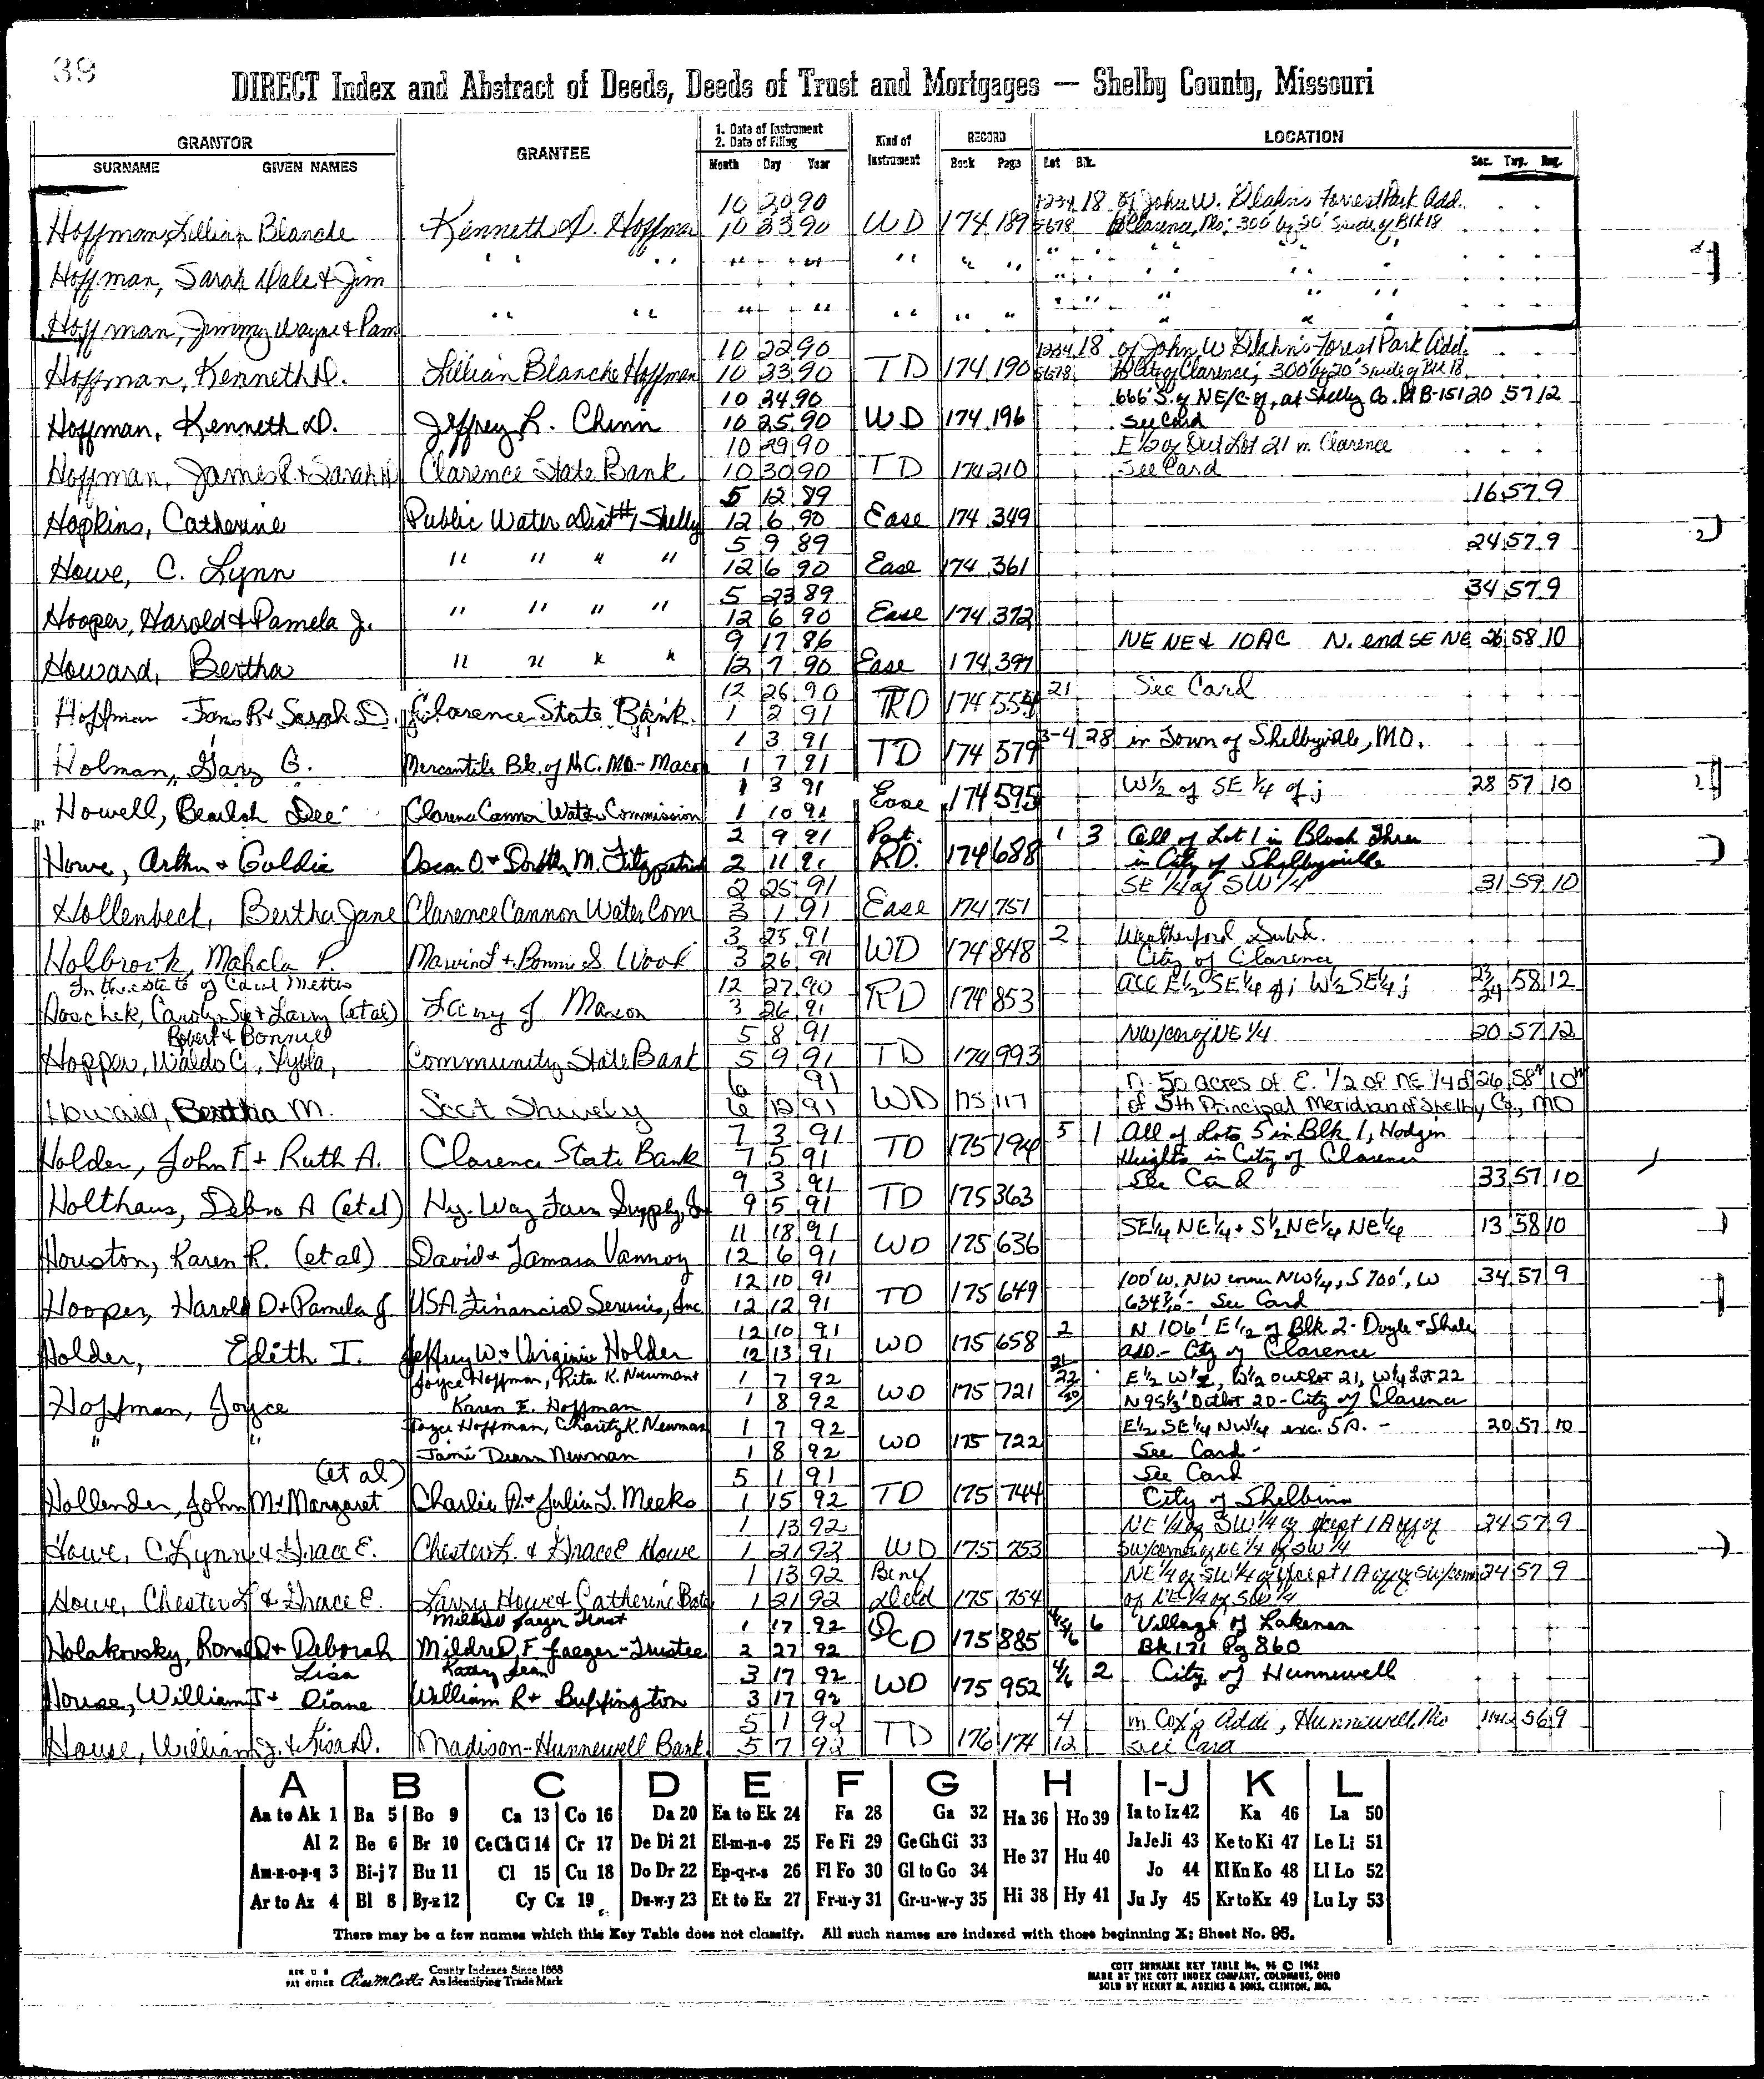 39
DIRECT Index and Abstract of Deeds, Deeds of Trust and Mortgages — Shelby County, Missouri
GRANTOR GRANTEE 1. Date of Instrument 2. Date of Filing Kind of Instrument RECORD LOCATION
SURNAME GIVEN NAMES Month Day Year Book Page Lot Blk. Sec. Twp. Rng.
10 20 90 1234 18 of John W. Forrest Park Add.
Hoffman, Lillian Blanche Kenneth D. Hoffman 10 23 90 WD 174 189 5678 to Clarence, Mo; 300' by 20' S side of Blk 18
Hoffman, Sarah Dale & Jim " " " " " " " " " "
Hoffman, Jimmy Wayne & Pam " " " " " " " " " "
10 22 90 1234 18 of John W Forest Park Add.
Hoffman, Kenneth D. Lillian Blanche Hoffman 10 23 90 TD 174 190 5678 to City of Clarence; 300' by 20' S side of Blk 18
10 24 90 666' S. of NE/C of, at Shelby Co. B-151 20 57 12
Hoffman, Kenneth D. Jeffrey L. Chinn 10 25 90 WD 174 196 See Card
10 29 90 E 1/2 of Out Lot 21 in Clarence
Hoffman, James R & Sarah D Clarence State Bank 10 30 90 TD 174 210 See Card
5 12 89 16 57 9
Hopkins, Catherine Public Water Dist #1 Shelby 12 6 90 Ease 174 349
5 9 89 24 57 9
Howe, C. Lynn " " " " 12 6 90 Ease 174 361
5 23 89 34 57 9
Hooper, Harold & Pamela J. " " " " 12 6 90 Ease 174 372
9 17 86 NE NE & 10 AC N. end SE NE 26 58 10
Howard, Bertha " " " " 12 7 90 Ease 174 397
12 26 90 21 See Card
Hoffman James R & Sarah D. Clarence State Bank. 1 2 91 TRD 174 554
1 3 91 3-4 28 in Town of Shelbyville, MO.
Holman, Gary G. Mercantile Bk. of N.C. MO.- Macon 1 7 91 TD 174 579
1 3 91 W 1/2 of SE 1/4 of j 28 57 10
Howell, Beulah Dee Clarence Cannon Water Commission 1 10 91 Ease 174 595
2 9 91 Part. 1 3 All of Lot 1 in Block Three
Howe, Arthur & Goldie Oscar O. & Dorothy M. Fitzpatrick 2 11 91 RD. 174 688 in City of Shelbyville
2 25 91 SE 1/4 of SW 1/4 31 59 10
Hollenbeck, Bertha Jane Clarence Cannon Water Com 3 1 91 Ease 174 751
3 25 91 2 Weatherford Subd.
Holbrook, Mahala P. Marvin L & Bonnie S Wood 3 26 91 WD 174 848 City of Clarence
In the estate of 12 27 90 All E 1/2 SE 1/4 of; W 1/2 SE 1/4 j 23/24 58 12
Carolyn Sue & Larry (et al) of Macon 3 26 91 RD 174 853
Robert & Bonnie 5 8 91 NW/cor of NE 1/4 20 57 12
Hopper, Waldo G., Lyda, Community State Bank 5 9 91 TD 174 993
6 91 N. 50 acres of E. 1/2 of NE 1/4 of 26 58N 10W
Howard, Bertha M. Scot Shively 6 12 91 WD 175 117 of 5th Principal Meridian of Shelby Co., MO
7 3 91 5 1 All of Lots 5 in Blk 1, Hodgin
Holder, John F & Ruth A. Clarence State Bank 7 5 91 TD 175 194 Heights in City of Clarence
9 3 91 See Card 33 57 10
Holthaus, Debra A (et al) Hy-Way Farm Supply, In 9 5 91 TD 175 363
11 18 91 SE 1/4 NE 1/4 + S 1/2 NE 1/4 NE 1/4 13 58 10
Houston, Karen R. (et al) David & Tamara Vannoy 12 6 91 WD 175 636
12 10 91 100' W. NW corner NW 1/4, S 700', W 34 57 9
Hooper, Harold D & Pamela J USA Financial Services, Inc 12 12 91 TD 175 649 See Card
12 10 91 2 N 106' E 1/2 of Blk 2- Doyle & Shale
Holder, Edith I. Jeffrey W. & Virginia Holder 12 13 91 WD 175 658 add.- City of Clarence
Joyce Hoffman, Rita K. Newman & 1 7 92 21 22 E 1/2 W 1/2, W 1/2 outlot 21, W 1/4 Lot 22
Hoffman, Joyce Karen E. Hoffman 1 8 92 WD 175 721 20 N 95 1/3' Outlot 20 - City of Clarence
" " Joyce Hoffman, Charity K. Newman 1 7 92 E 1/2 SE 1/4 NW 1/4 exc. 5 A. - 20 57 10
Jami Deann Newman 1 8 92 WD 175 722 See Card -
(et al) 5 1 91 See Card
Hollender, John M & Margaret Charlie D. & Julia L. Meeks 1 15 92 TD 175 744 City of Shelbina
1 13 92 NE 1/4 of SW 1/4 except 1 A off of 24 57 9
Howe, C Lynn & Grace E. Chester L. & Grace E Howe 1 21 92 WD 175 753 SW/corner of NE 1/4 of SW 1/4
1 13 92 Benf NE 1/4 of SW 1/4 except 1 A off of SW/corner 24 57 9
Howe, Chester L & Grace E. Larry Howe & Catherine Bate 1 21 92 Deed 175 754 of NE 1/4 of SW 1/4
Mildred Jaeger Trust 1 17 92 4/5/6 6 Village of Lakenan
Holakovsky, Ronald & Deborah Mildred F Jaeger-Trustee 2 27 92 QCD 175 885 Bk 171 Pg 860
Lisa Kathy Jean 3 17 92 2 City of Hunnewell
House, William J & Diane William R & Buffington 3 17 92 WD 175 952
5 1 92 4 in Cox's Addi, Hunnewell Mo 11&12 56 9
House, William J. & Lisa D. Madison-Hunnewell Bank 5 7 92 TD 176 174 12 See Card
A B C D E F G H I-J K L
Aa to Ak 1 Ba 5 Bo 9 Ca 13 Co 16 Da 20 Ea to Ek 24 Fa 28 Ga 32 Ha 36 Ho 39 Ia to Iz 42 Ka 46 La 50
Al 2 Be 6 Br 10 Ce Ch Ci 14 Cr 17 De Di 21 El-m-n-o 25 Fe Fi 29 Ge Gh Gi 33 He 37 Hu 40 Ja Je Ji 43 Ke to Ki 47 Le Li 51
Am-n-o-p-q 3 Bi-j 7 Bu 11 Cl 15 Cu 18 Do Dr 22 Ep-q-r-s 26 Fl Fo 30 Gl to Go 34 Hi 38 Hy 41 Jo 44 Kl Kn Ko 48 Ll Lo 52
Ar to Az 4 Bl 8 By-z 12 Cy Cz 19 Du-w-y 23 Et to Ez 27 Fr-u-y 31 Gr-u-w-y 35 Ju Jy 45 Kr to Kz 49 Lu Ly 53
There may be a few names which this Key Table does not classify. All such names are indexed with those beginning X; Sheet No. 95.
REG. U S PAT OFFICE County Indexes Since 1888 An Identifying Trade Mark
COTT SURNAME KEY TABLE No. 96 © 1962
MADE BY THE COTT INDEX COMPANY, COLUMBUS, OHIO
SOLD BY HENRY M. ADKINS & SONS, CLINTON, MO.